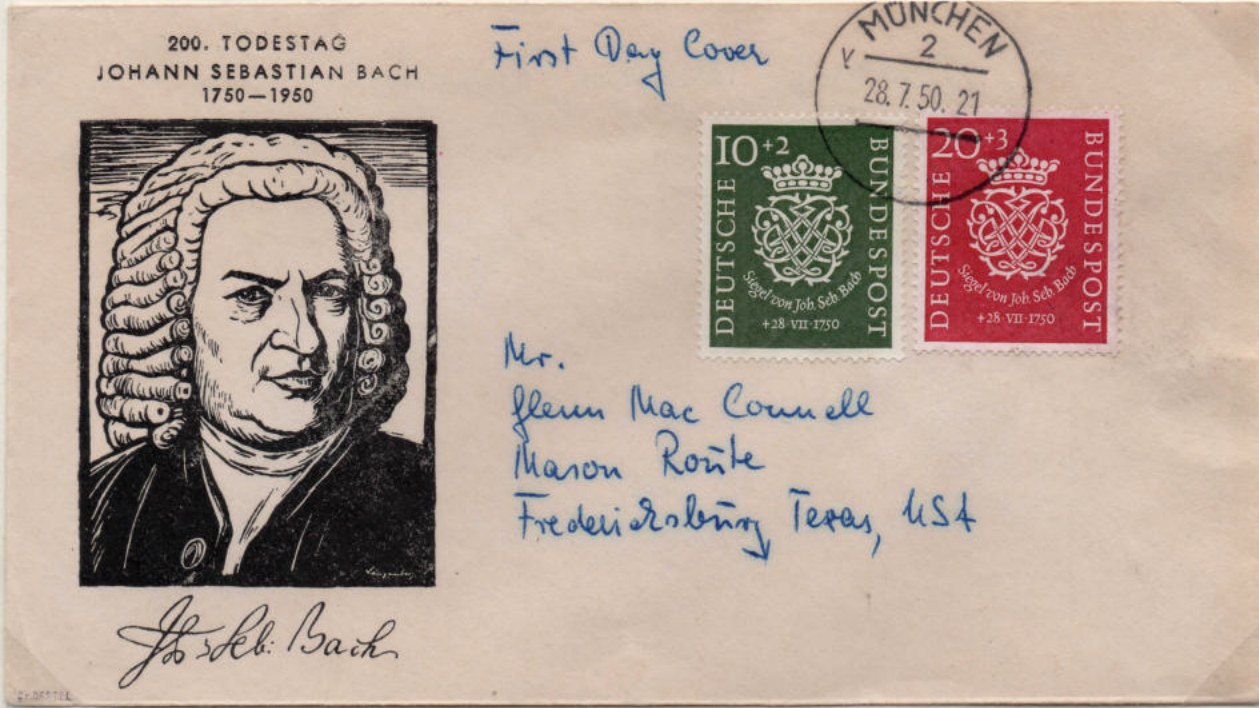 200. TODESTAG
JOHANN SEBASTIAN BACH
1750—1950
First Day Cover
MÜNCHEN
2
28.7.50. 21
10+2
DEUTSCHE
BUNDESPOST
Siegel von Joh. Seb. Bach
+28·VII·1750
20+3
DEUTSCHE
BUNDESPOST
Siegel von Joh. Seb. Bach
+28·VII·1750
Mr.
Glenn Mac Connell
Mason Route
Fredericksburg Texas, USA
Joh. Seb: Bach